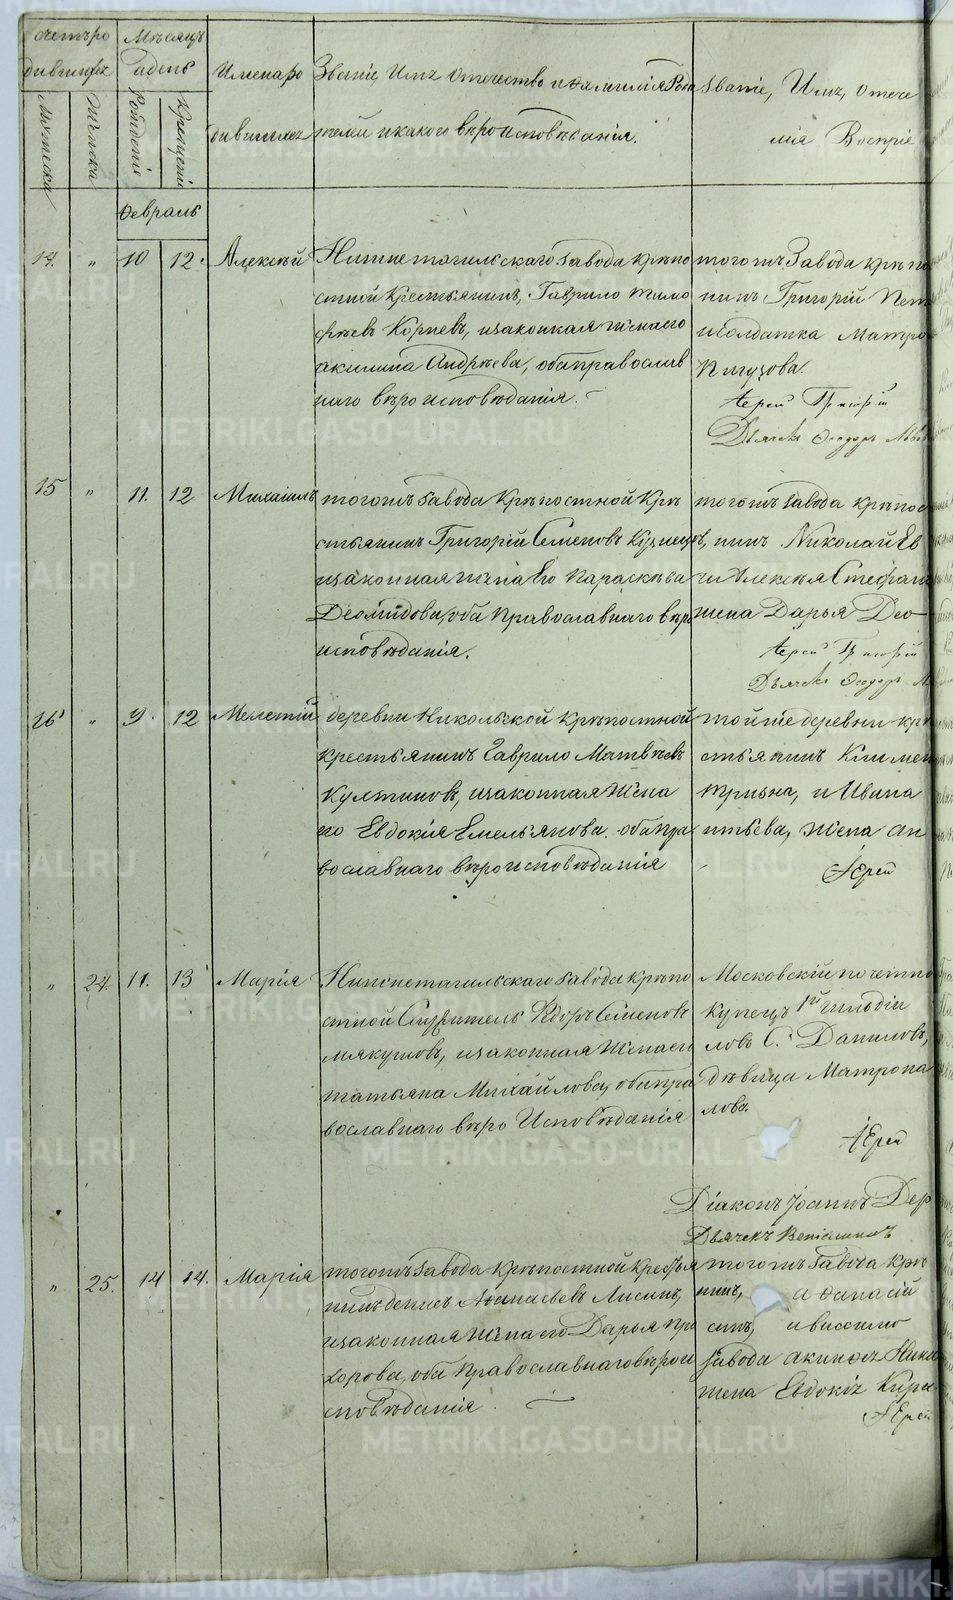 Счетъ ро
дившихся
Мѣсяцъ
и день
Имена ро
дившихся
Званіе, Имя Отечество и фамилія Роди
телей и какого вѣроисповѣданія.
Званіе, Имя, Отече
лія Воспріе
Мужеска
Женска
Рожденія
Крещенія
Февраль
14. " 10 12. Алексѣй
Нижнетагильскаго Завода крѣпо
стной Крестьянинъ, Гаврило Тимо
фѣевъ Корневъ, и законная жена его
Акилина Андрѣева, оба православ
наго вѣроисповѣданія.
тогожъ Завода крѣпо
нинъ Григорій Пет
и Солдатка Матро
Пигузова.
Іерей Григорій
Дьячекъ Феодоръ
15 " 11. 12 Михаилъ
тогожъ Завода Крѣпостной Кре
стьянинъ Григорій Семеновъ Кузнецовъ,
и законная жена Его Параскѣва
Деомидова, оба Православнаго вѣро
исповѣданія.
тогожъ Завода крѣпос
нинъ Николай Ев
и Алексѣя Стефан
жена Дарья Део
Іерей Григорій
Дьячекъ Феодоръ
16 " 9. 12 Мелетій
деревни Никольской крѣпостной
крестьянинъ Гаврило Матвѣевъ
и законная Жена
го Евдокія Емельянова. оба пра
вославнаго вѣроисповѣданія
тойже деревни кре
стьянинъ Климен
и Ивана
нтьева, Жена Ан
Іерей
" 24. 11. 13 Марія
Нижнетагильскаго Завода крѣпо
стной Служитель Ѳедоръ Семеновъ
Мякушовъ, и законная Жена его
Татьяна Михайлова, оба пра
вославнаго вѣро Исповѣданія
Московскій почетно
Купецъ 1й гильдіи
ловъ С. Даниловъ,
Дѣвица Матрона
ловъ.
Іерей
Діаконъ Іоаннъ Дер
Дьячекъ Веніаминъ
" 25. 14 14. Марія
тогожъ Завода крѣпостной крестья
нинъ Денисъ Афанасьевъ Лисинъ,
и законная жена его Дарья Про
хорова, оба Православнаго вѣрои
сповѣданія.
тогожъ Завода кре
нинъ, Афанасій
синъ, и Виссимо
Завода Акинфъ Ники
жена Евдокія Кири
Іерей
METRIKI.GASO-URAL.RU